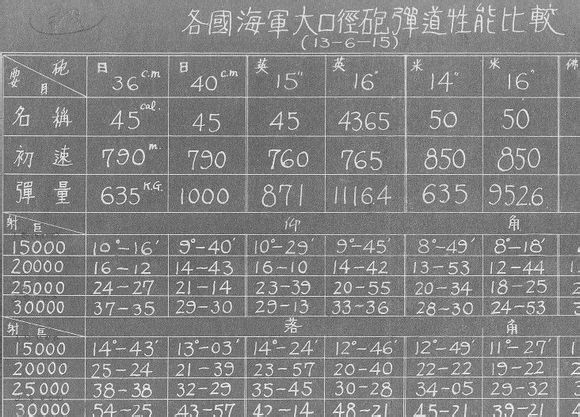 各國海軍大口徑砲彈道性能比較
(13-6-15)
要目 砲 日 36c.m 日 40c.m 英 15" 英 16" 米 14" 米 16" 佛
名稱 45cal. 45 45 43.65 50 50
初速 790m. 790 760 765 850 850
彈量 635K.G. 1000 871 1116.4 635 952.6
射距 仰角
15000 10°-16′ 9°-40′ 10°-29′ 9°-45′ 8°-49′ 8°-18′
20000 16-12 14-43 16-10 14-42 13-53 12-44
25000 24-27 21-14 23-39 20-55 20-34 18-25
30000 37-35 29-30 29-13 33-36 28-30 24-53
射距 落角
15000 14°-43′ 13°-03′ 14°-24′ 12°-46′ 12°-49′ 11°-27′
20000 25-24 21-39 23-57 20-40 22-22 19-22
25000 38-38 32-29 35-45 30-28 34-05 29-32
30000 54-25 43-57 42-14 48-21 45-21 39-21